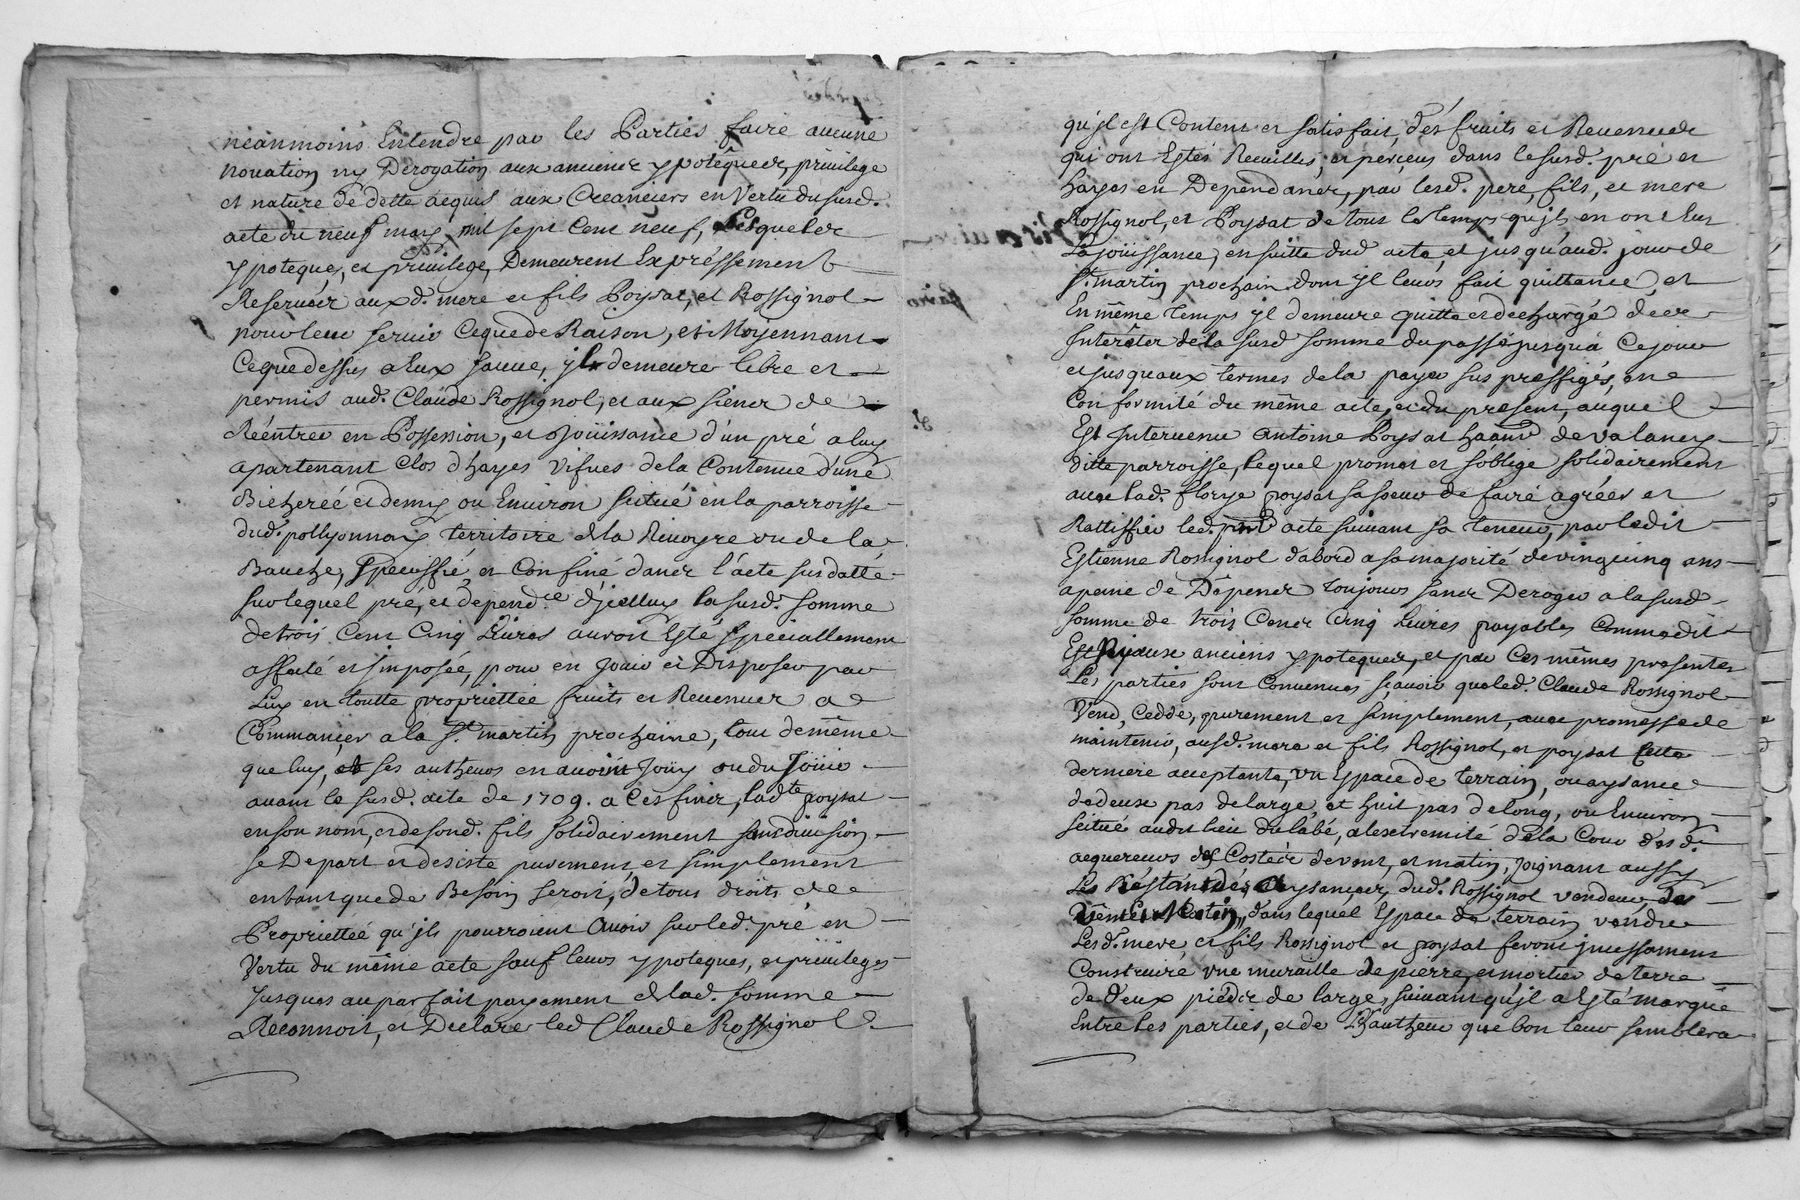 néanmoins Entendre par les Parties faire aucune
novation ny Derogation aux anciens ypotéques, privilege
et nature de dette acquis aux Creanciers en Vertu du susd.
acte du neuf mars mil sept Cent neuf, Lesqueles
ypoteques, et privilege, Demeurent Expréssement
Reservées auxd. mere et fils Poysat, et Rossignol
pour leur servir Ceque de Raison, et Moyennant
Ceque dessus a Eux sauve, il demeure libre et
permis aud. Claude Rossignol, et aux siens de
Réentrer en Possession, et Joüissance d'un pré a luy
apartenant Clos d'hayes vifves dela Contenue d'une
Bicherée et demy ou Environ scitué en la parroisse
dud. pollyonnay territoire de la Revoyre ou de la
Bauche, speciffié, et Confiné dans l'acte sus datté
sur lequel pré, et depend.ce d'jcelluy la susd. somme
de trois Cent Cinq Livres auroit Esté speciallement
affecté et jmposée, pour en Jouir et Disposer par
Luy en toutte propriettée fruits et Revenues a
Commancer a la St. martin prochaine, tout de même
que luy, et ses autheurs en avoint Joüy ou du Joüir
avant le susd. acte de 1709. a Ces fins, lad.te poysat
en son nom, et de sond. fils solidairement sans division
se Depart et desiste purement, et simplement
en tant que de Besoin seroit, de tous droits de
Propriettée qu'jls pourroient Avoir sur led. pré en
Vertu du même acte sauf leurs ypoteques, et privileges
Jusques au parfait payement de lad. somme
Reconnoit, et Declare led Claude Rossignol
qu'jl est Content et satisfait, des fruits et Revenues
qui ont Estés Recuilles, et perçeus dans le susd. pré et
hayes en Dependances, par lesd. pere, fils, et mere
Rossignol, et Poysat de tout le temps qu'jls en ont Eut
La joüissance, en suitte dud acte, et jusqu'aud. jour de
St. martin prochain dont jl leurs fait quittance, et
En même temps jl demeure quitte et dechargé des
Jnterêts de la susd somme du passé jusqu'à Ce jour
et jusqu'aux termes de la paye sus pressigés, en
Conformité du même acte, et du present, auquel
Est Jntervenu Antoine Poysat de valancy
ditte parroisse, lequel promet et s'oblige solidairement
avec lad. florye poysat sa soeur de faire agréer et
Rattiffier led. pnt acte suivant sa teneur, par ledit
Estienne Rossignol d'abord a sa majorité de vingt cinq ans
a peine de Dépens toujours sans Deroger a la susd
somme de trois Cens Cinq Livres payables Comme dit
Est Ny aux anciens ypoteques, et par Ces mêmes presentes
Les parties sont Convenues sçavoir que led. Claude Rossignol
Vend, Cedde, purement et simplement, avec promesse de
maintenir, ausd. mere et fils Rossignol, et poysat Cette
derniere acceptante, vn Espace de terrain, ou aysance
de deux pas de large et huit pas de long, ou Environ
scitué audit lieu du labé, a l'extremité de la Cour desd.
acquereurs de Costé de vent, et matin, joignant aussy
Les Restant des Aysances, dud. Rossignol vendeur
dans lequel Espace de terrain vendu
Lesd. mere et fils Rossignol et poysat feront jncessament
Construire vne muraille de pierre, et mortier de terre
de deux pieds de large, suivant qu'jl a Esté marqué
Entre les parties, et de l'hautheur que bon leur semblera